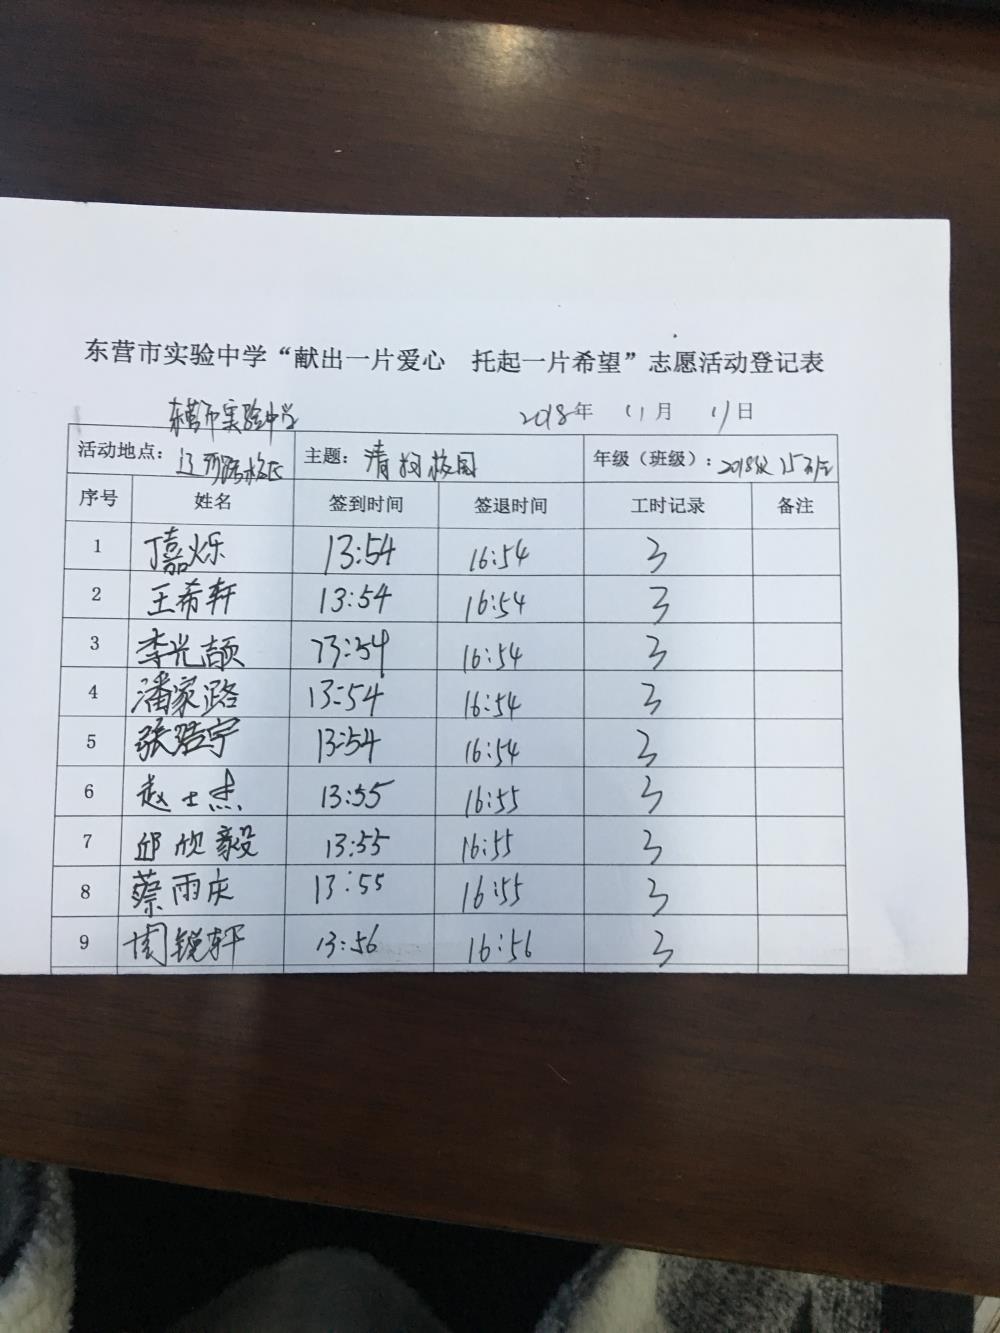 东营市实验中学“献出一片爱心 托起一片希望”志愿活动登记表
东营市实验中学 2018年 11月 11日
活动地点：辽河路校区 主题：清扫校园 年级（班级）：2018级15班
序号 姓名 签到时间 签退时间 工时记录 备注
1 丁嘉烁 13:54 16:54 3
2 王希轩 13:54 16:54 3
3 李光颉 13:54 16:54 3
4 潘家潞 13:54 16:54 3
5 张浩宇 13:54 16:54 3
6 赵士杰 13:55 16:55 3
7 邱欣毅 13:55 16:55 3
8 蔡雨庆 13:55 16:55 3
9 周锐轩 13:56 16:56 3